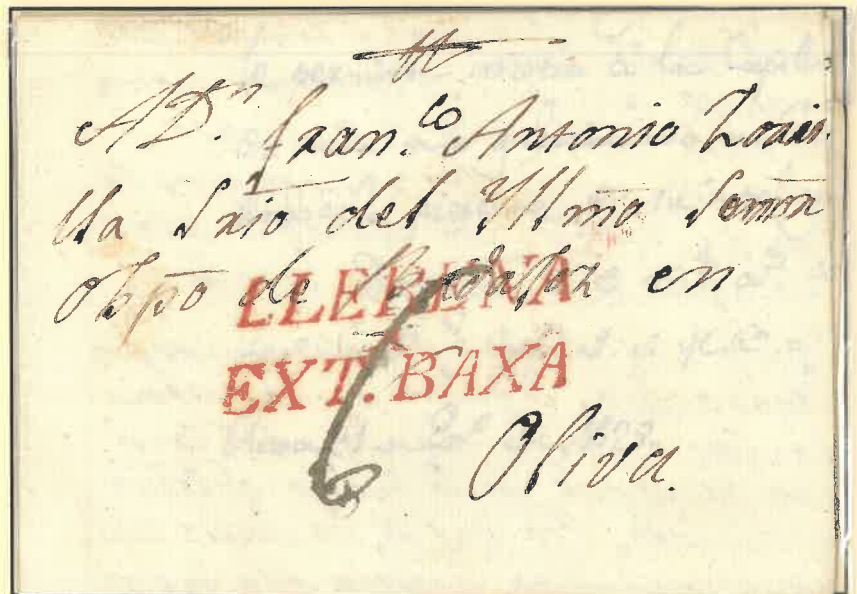 A Dn. Fran.co Antonio
lla Srio del Yllmo Señor
Obpo de Badajoz en
LLERENA
EXT. BAXA
Oliva.